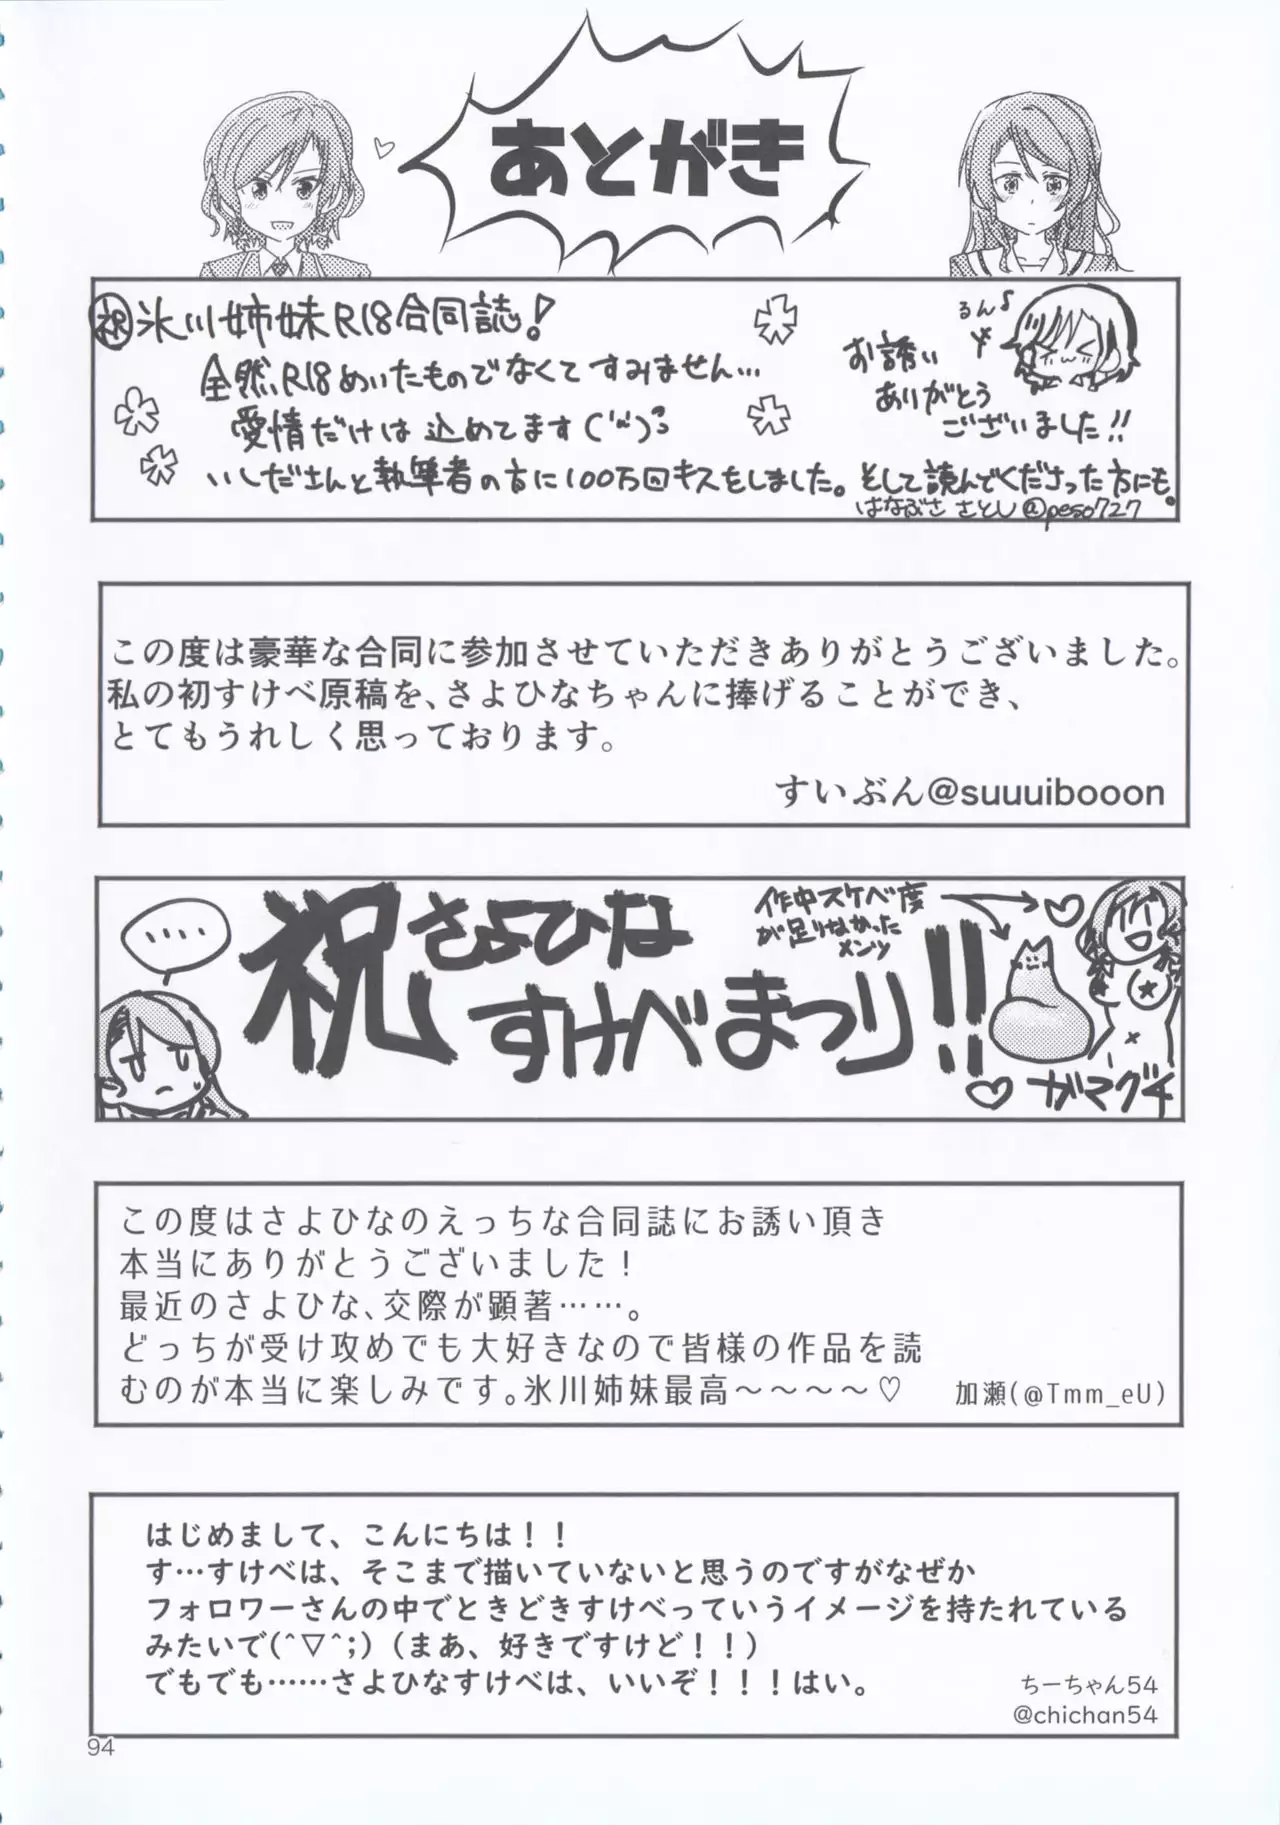 あとがき
祝 氷川姉妹R18合同誌!
全然R18めいたものでなくてすみません…
愛情だけは込めてます
いしださんと執筆者の方に100万回キスをしました。そして読んでくださった方にも。
はなぶささとし@peso727
るん♪
お誘い
ありがとう
ございました!!
この度は豪華な合同に参加させていただきありがとうございました。
私の初すけべ原稿を、さよひなちゃんに捧げることができ、
とてもうれしく思っております。
すいぶん@suuuibooon
‥‥
祝 さよひな
すけべまつり!!
作中スケベ度
が足りなかった
メンツ
ガマグチ
この度はさよひなのえっちな合同誌にお誘い頂き
本当にありがとうございました!
最近のさよひな、交際が顕著……。
どっちが受け攻めでも大好きなので皆様の作品を読
むのが本当に楽しみです。氷川姉妹最高〜〜〜〜♡
加瀬(@Tmm_eU)
はじめまして、こんにちは!!
す…すけべは、そこまで描いていないと思うのですがなぜか
フォロワーさんの中でときどきすけべっていうイメージを持たれている
みたいで(^▽^;)(まあ、好きですけど!!)
でもでも……さよひなすけべは、いいぞ!!!はい。
ちーちゃん54
@chichan54
94